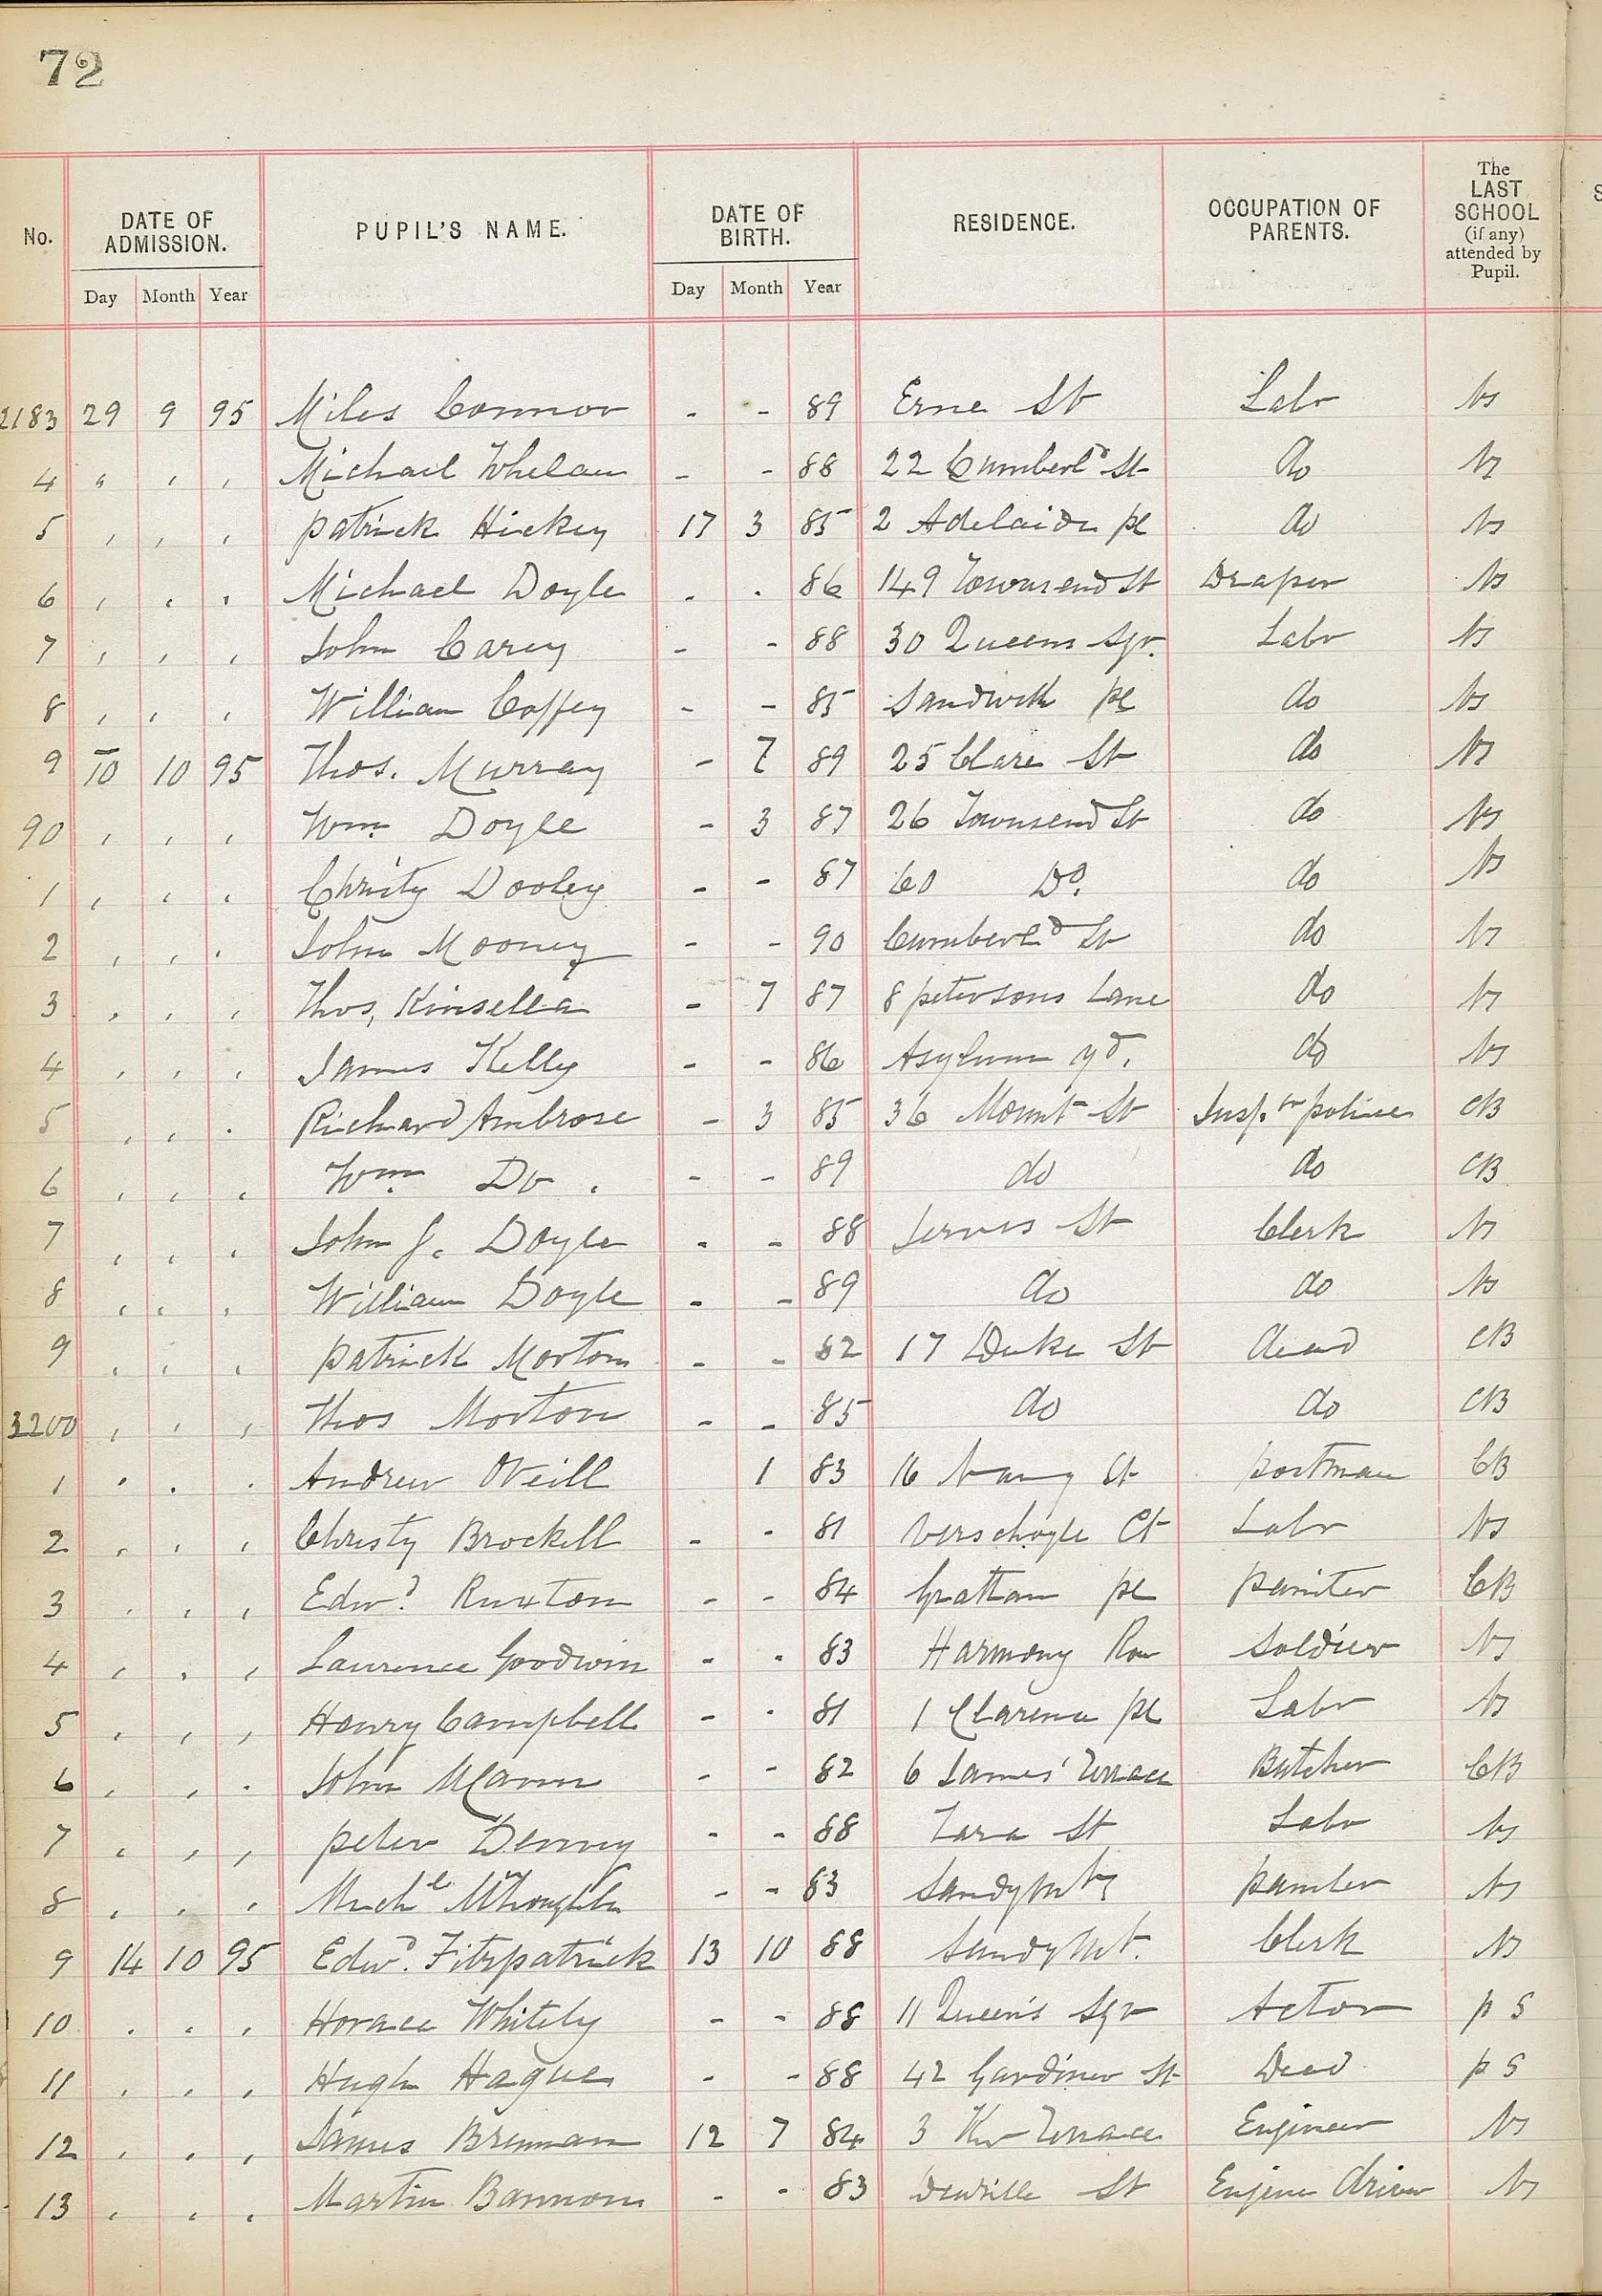 72
No. DATE OF ADMISSION. PUPIL'S NAME. DATE OF BIRTH. RESIDENCE. OCCUPATION OF PARENTS. The LAST SCHOOL (if any) attended by Pupil.
Day Month Year Day Month Year
2183 29 9 95 Miles Connor - - 89 Erne St Labr Ns
4 " , , Michael Whelan - - 88 22 Cumberld St do Ns
5 , , , Patrick Hickey 17 3 85 2 Adelaide pl do Ns
6 , , , Michael Doyle - - 86 149 Townsend St Draper Ns
7 , , , John Carey - - 88 30 Queens Sqr. Labr Ns
8 , , , William Coffey - - 85 Sandwith pl do Ns
9 10 10 95 Thos. Murray - 7 89 25 Clare St do Ns
90 , , , Wm Doyle - 3 87 26 Townsend St do Ns
1 , , , Christy Dooley - - 87 60 Do. do Ns
2 , , , John Mooney - - 90 Cumberld St do Ns
3 , , , Thos, Kinsella - 7 87 8 petersons Lane do Ns
4 , , , James Kelly - - 86 Asylum yd. do Ns
5 , , , Richard Ambrose - 3 85 36 Mount St Insp.tr police CB
6 , , , Wm Do. - - 89 do do CB
7 , , , John J. Doyle - - 88 Jervis St Clerk Ns
8 , , , William Doyle - - 89 do do Ns
9 , , , Patrick Morton - - 82 17 Duke St dead CB
3200 , , , Thos Morton - - 85 do do CB
1 , , , Andrew O'Neill 1 83 16 St postman CB
2 , , , Christy Brockell - - 81 Verschoyle Ct Labr Ns
3 , , , Edwd Ruxton - - 84 Grattan pl painter CB
4 , , , Laurence Goodwin - - 83 Harmony Row soldier Ns
5 , , , Henry Campbell - - 81 1 Clarence pl Labr Ns
6 , , , John McCann - - 82 6 James' Terrace Butcher CB
7 , , , Peter Denny - - 88 Tara St Labr Ns
8 , , , Michl - - 83 painter Ns
9 14 10 95 Edwd. Fitzpatrick 13 10 88 Sandymt. Clerk Ns
10 , , , Horace Whitely - - 88 11 Queen's Sqr Actor p S
11 , , , Hugh Hague - - 88 42 Gardiner St Dead p S
12 , , , James Brennan 12 7 84 3 Terrace Engineer Ns
13 , , , Martin Bannon - - 83 St Engine driver Ns